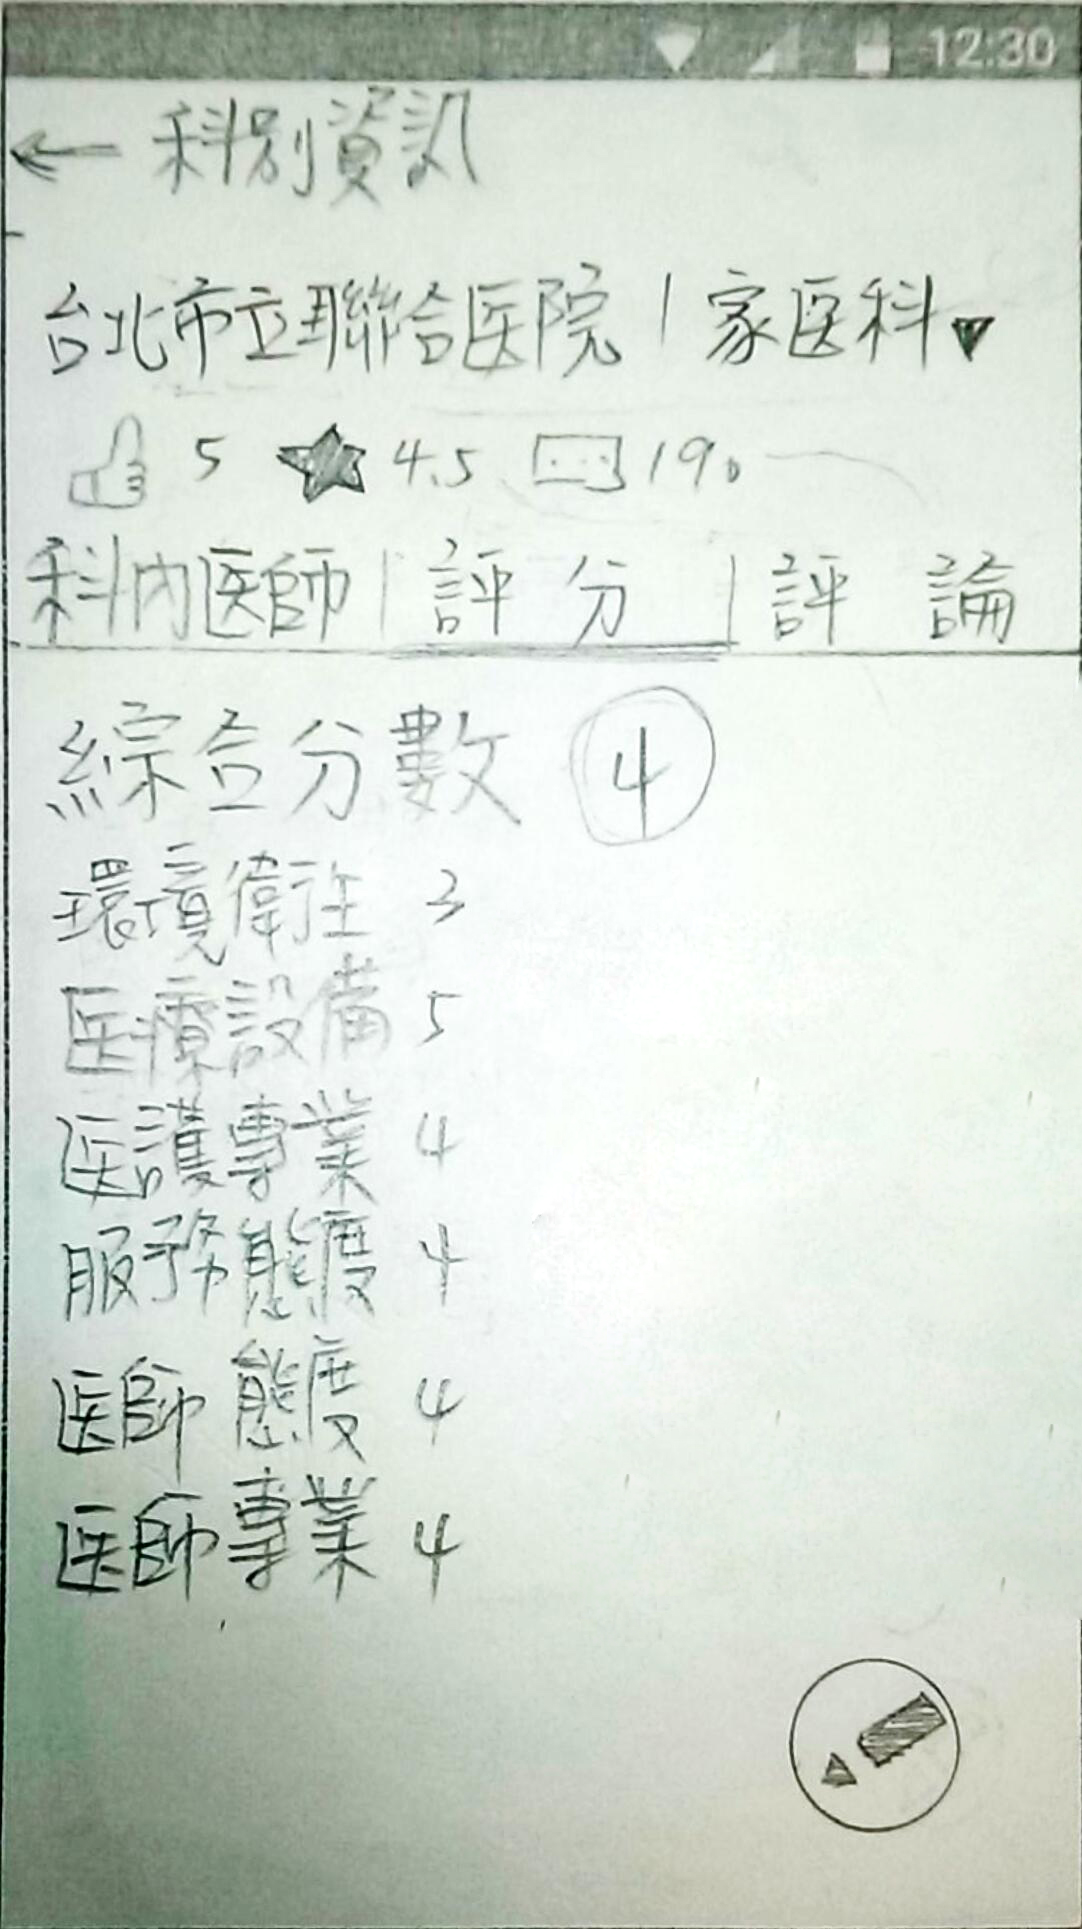 12:30
← 科別資訊
台北市立聯合医院 | 家医科▼
5 ★ 4.5 190
科內医師 | 評分 | 評論
綜合分數 4
環境衛生 3
医療設備 5
医護專業 4
服務態度 4
医師態度 4
医師專業 4